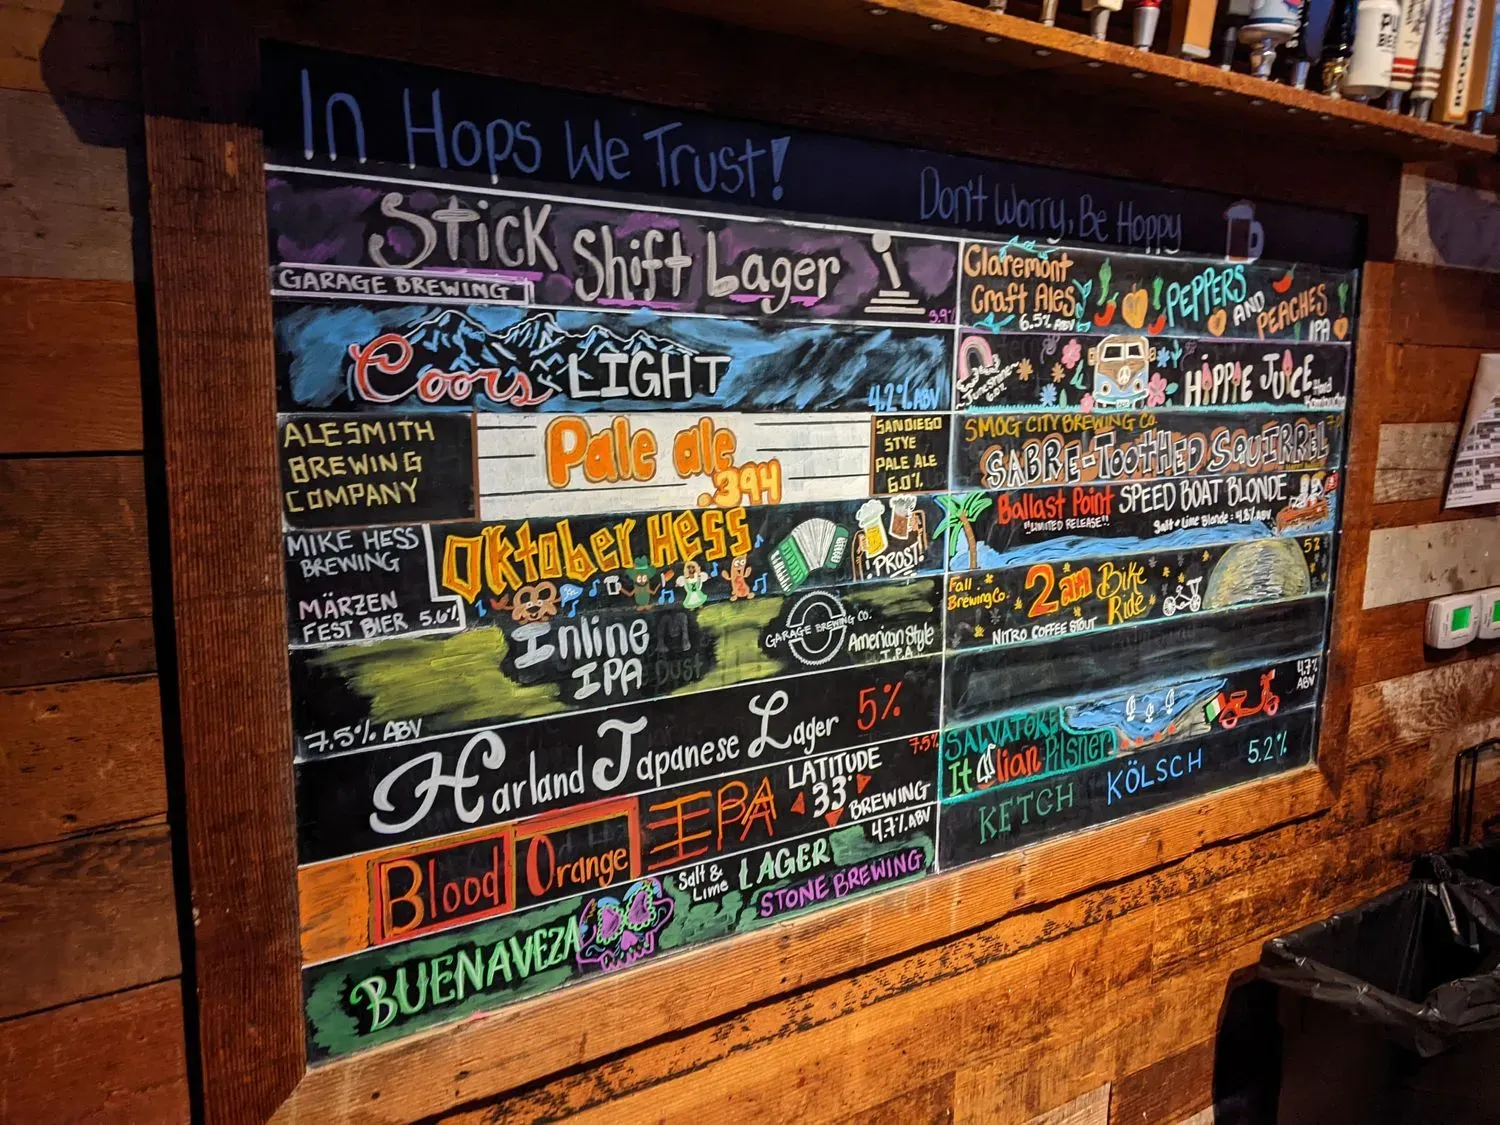 In Hops We Trust!
Don't Worry, Be Hoppy
Stick Shift Lager
GARAGE BREWING
3.9%
Coors LIGHT
4.2% ABV
ALESMITH
BREWING
COMPANY
Pale ale
.394
SANDIEGO
STYE
PALE ALE
6.0%
MIKE HESS
BREWING
MÄRZEN
FEST BIER 5.6%
Oktober Hess
! PROST!
Inline
IPA
7.5% ABV
GARAGE BREWING CO.
American Style
I.P.A.
Harland Japanese Lager 5%
Blood Orange IPA
LATITUDE
33°
BREWING
7.5%
BUENAVEZA
Salt &
Lime
LAGER
STONE BREWING
4.7% ABV
Claremont
Craft Ales
6.5% ABV
PEPPERS
AND
PEACHES
IPA
HIPPIE JUICE
Hard
Kombucha
Juneshine
6.0%
SMOG CITY BREWING CO.
SABRE-TOOTHED SQUIRREL
Ballast Point SPEED BOAT BLONDE
"LIMITED RELEASE!"
Salt & Lime Blonde: 4.8% ABV
Fall
Brewing Co.
2am Bike
Ride
NITRO COFFEE STOUT
5%
SALVATORE
Italian Pilsner
4.7%
ABV
KETCH KÖLSCH 5.2%
BOOCHCRA